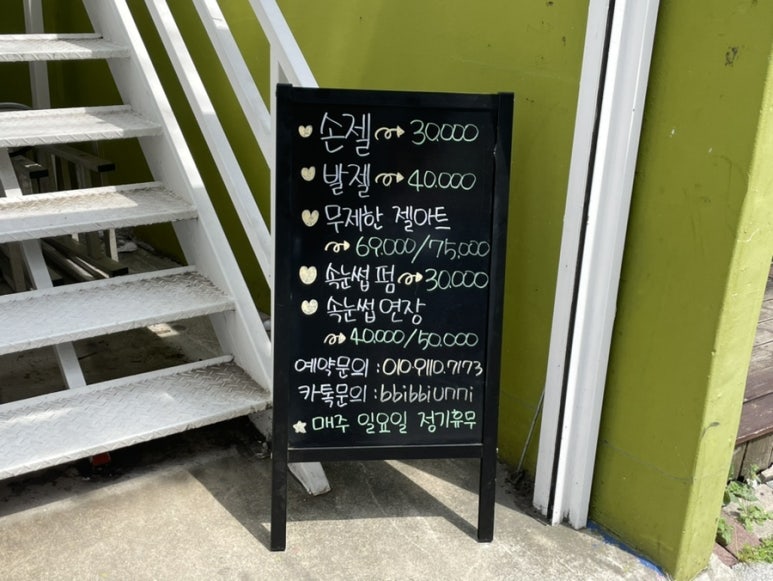 손젤 30.000
발젤 40.000
무제한 젤아트
69.000/75,000
속눈썹 펌 30.000
속눈썹 연장
40.000/50.000
예약문의 : 010.9110.7173
카톡문의 : bbibbiunni
매주 일요일 정기휴무